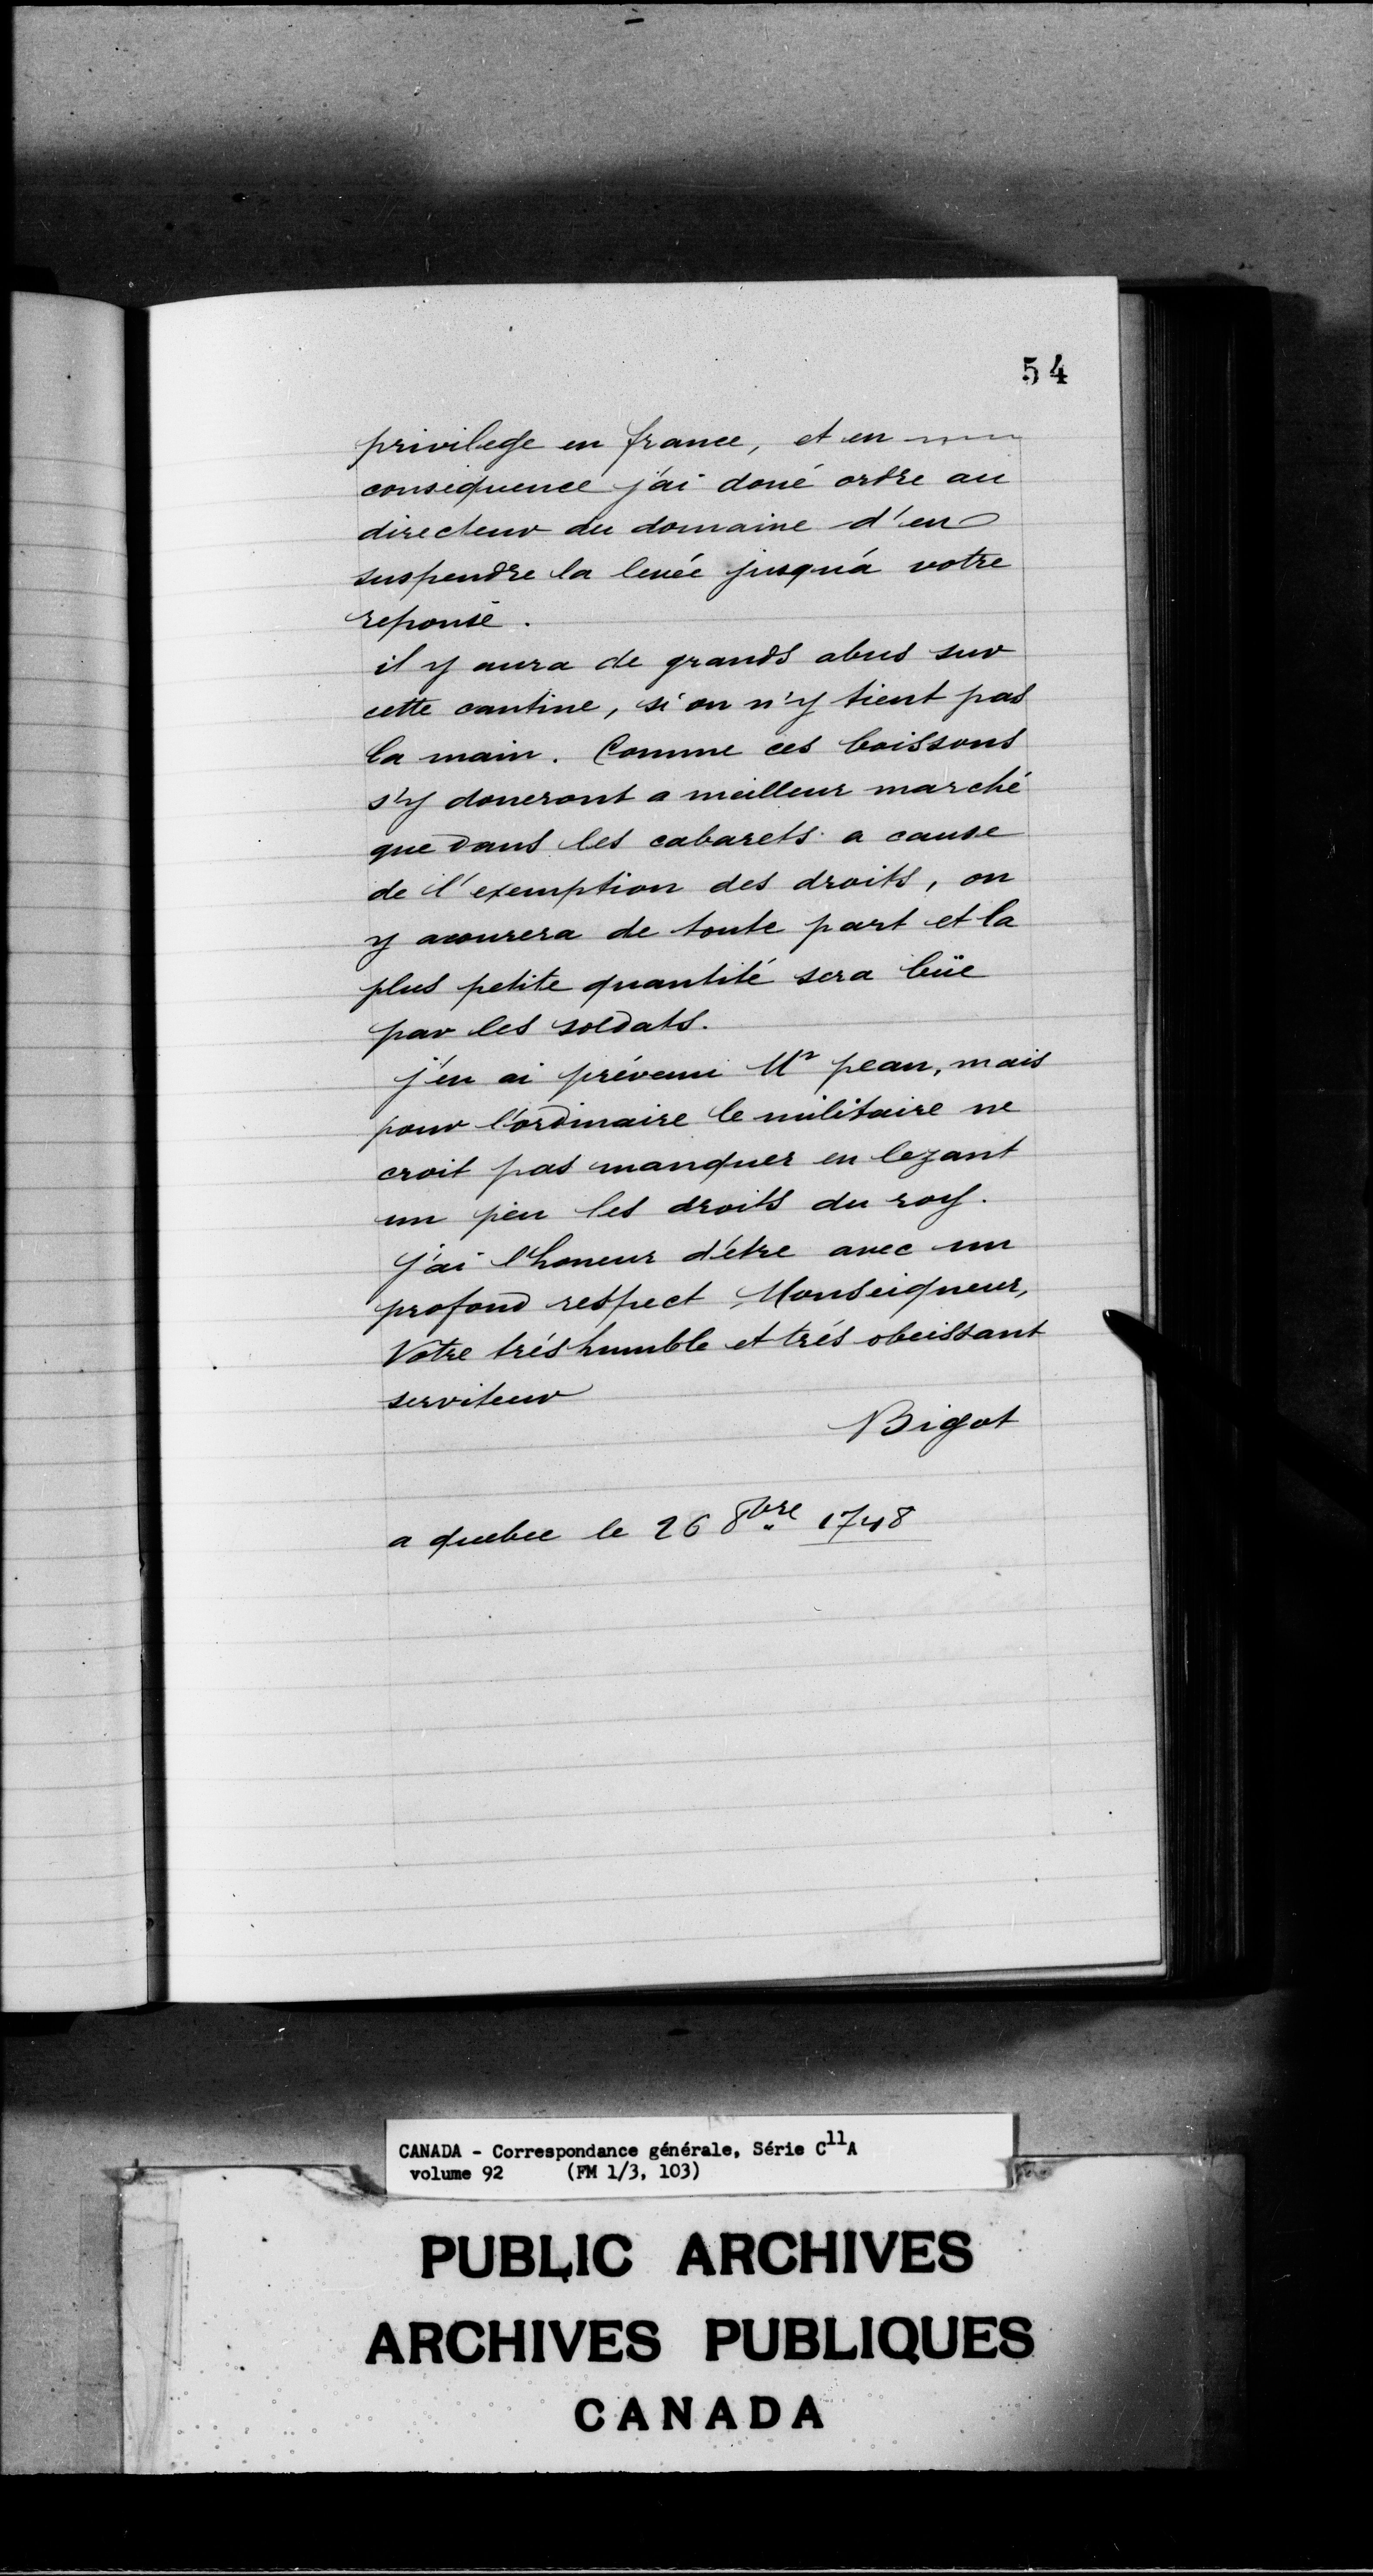 54
privilege en france, et en
consequence j'ai doné ordre au
directeur du domaine d'en
suspendre la levée jusqu'á votre
reponse.
il y aura de grands abus sur
cette cantine, si on n'y tient pas
la main. Comme ces boissons
s'y doneront a meilleur marché
que dans les cabarets a cause
de l'exemption des droits, on
y acourera de toute part et la
plus petite quantité sera büe
par les soldats.
j'en ai prévenu Mr pean, mais
pour l'ordinaire le militaire ne
croit pas manquer en lezant
un peu les droits du roy.
j'ai l'honeur d'être avec un
profond respect Monseigneur,
Votre trés humble et trés obeissant
serviteur
Bigot
a quebec le 26 8bre 1748
CANADA - Correspondance générale, Série C11A
volume 92 (FM 1/3, 103)
PUBLIC ARCHIVES
ARCHIVES PUBLIQUES
CANADA